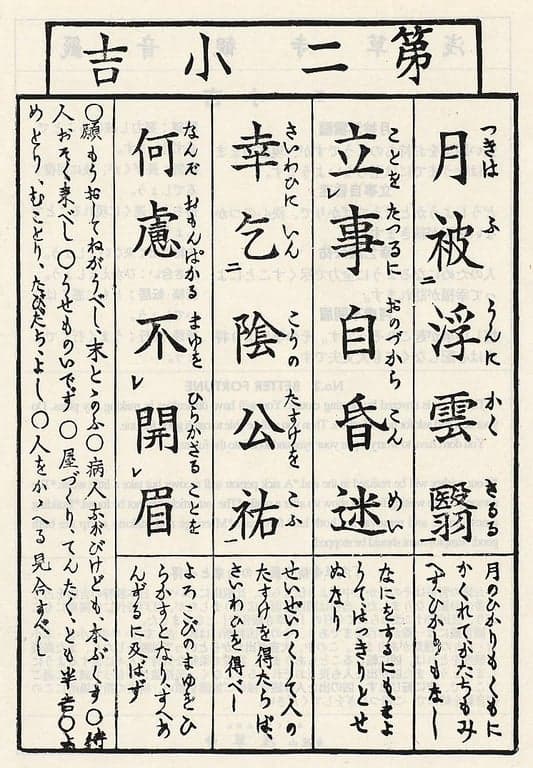 第二小吉
つきは ふうんに かくさるる
月被浮雲翳
月のひかりもくもに
かくれてかたちもみ
へず、ひかりもなし
ことを たつるに おのづから こんめい
立事自昏迷
なにをするにもまよ
りてはつきりとせ
ぬなり
さいわひに いん こうの たすけを こふ
幸乞陰公祐
せいぜいつくして人の
たすけを得たらば、
さいわひを得べし
なんぞ おもんぱかる まゆを ひらかざることを
何慮不開眉
よろこびのまゆをひ
らかすとなりすへあ
んずるに及はず
○願もうおてねがうべし、末とゝのふ○病人ながびけども、本ぶくす○待
人おそく来べし○うせものいです○屋づくり、てんたくとも半吉○
めとり、むことり、たびだち、よし○人をかゝる見合すべし